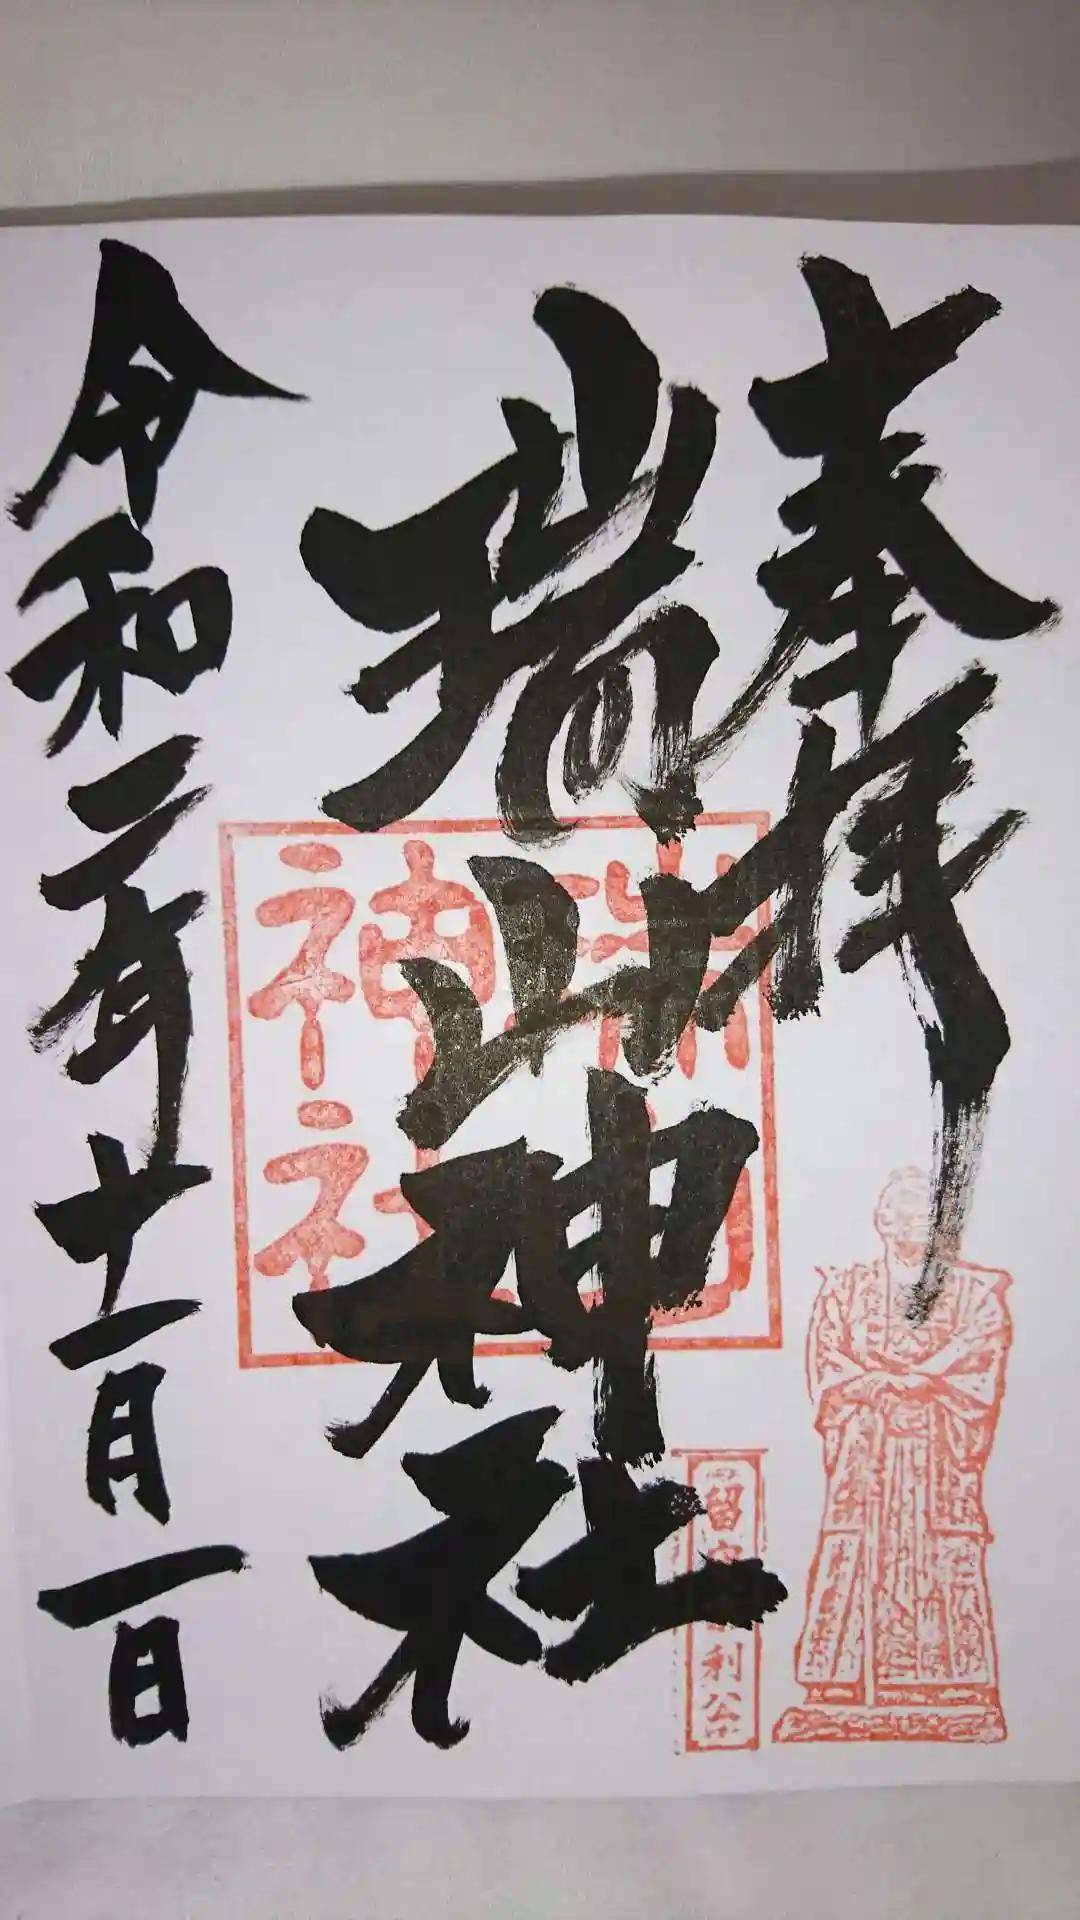 奉拝
瑞山神社
令和元年十一月一日
瑞山
神社
留守 利公